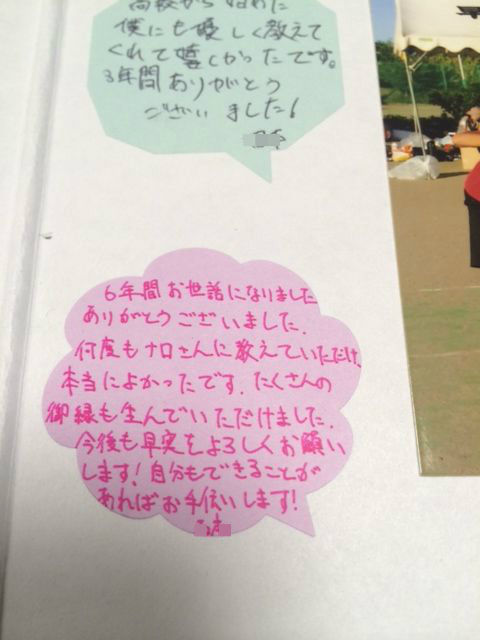 高校から始めた
僕にも優しく教えて
くれて嬉しかったです。
3年間ありがとう
ございました!
6年間お世話になりました
ありがとうございました.
何度もナロさんに教えていただけ,
本当によかったです. たくさんの
御縁も生んでいただけました.
今後も早実をよろしくお願い
します!自分もできることが
あればお手伝いします!